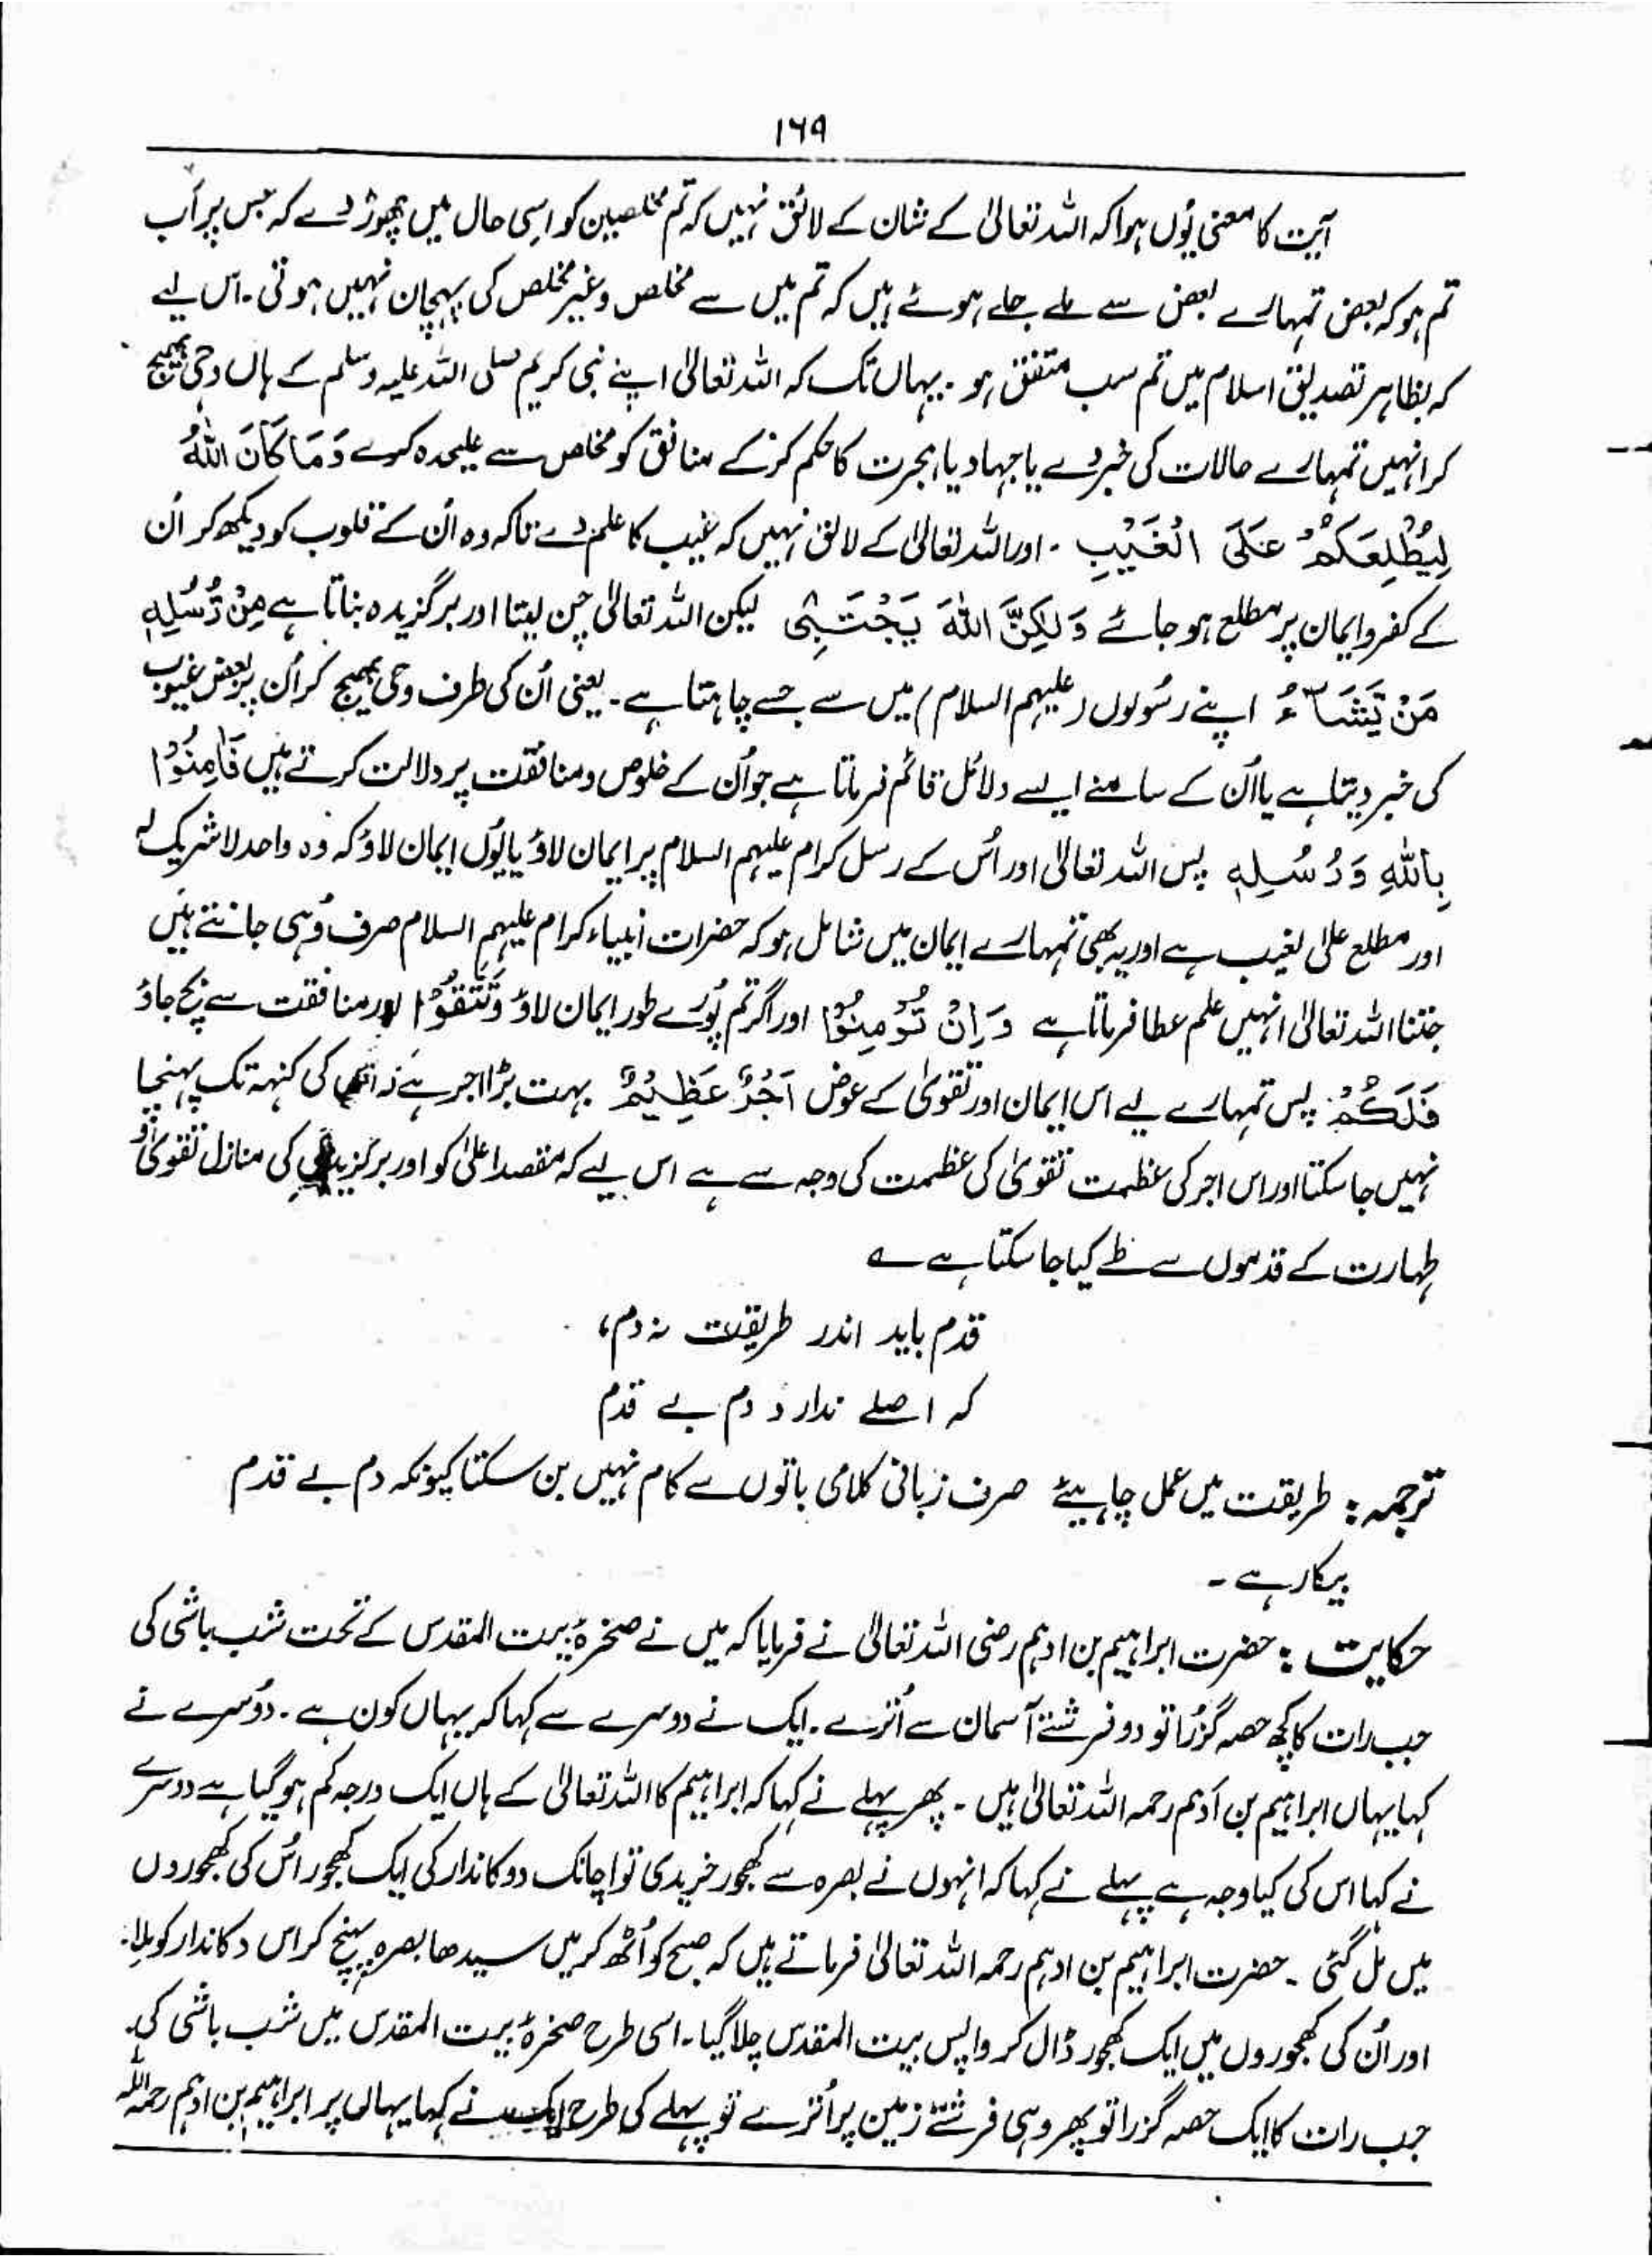 ۱۶۹
آیت کا معنی یُوں ہوا کہ اللہ تعالیٰ کے شان کے لائق نہیں کہ تم مخلصین کو اسی حال میں چھوڑ دے کہ جس پر اَب
تم ہو کہ بعض تمہارے بعض سے ملے جلے ہوئے ہیں کہ تم میں سے مخلص و غیر مخلص کی پہچان نہیں ہوتی۔ اس لیے
کہ بظاہر تصدیق اسلام میں تم سب متفق ہو۔ یہاں تک کہ اللہ تعالیٰ اپنے نبی کریم صلی اللہ علیہ وسلم کے ہاں وحی بھیج
کر انہیں تمہارے حالات کی خبر دے یا جہاد یا ہجرت کا حکم کرکے منافق کو مخلص سے علیحدہ کرے وَمَا كَانَ اللّٰهُ
لِيُطْلِعَكُمْ عَلَى الْغَيْبِ ۔ اور اللہ تعالیٰ کے لائق نہیں کہ غیب کا علم دے تاکہ وہ اُن کے قلوب کو دیکھ کر اُن
کے کفر و ایمان پر مطلع ہو جائے وَلٰكِنَّ اللّٰهَ يَجْتَبِيْ لیکن اللہ تعالیٰ چن لیتا اور برگزیدہ بناتا ہے مِنْ رُّسُلِهٖ
مَنْ يَّشَآءُ اپنے رسُولوں (علیہم السلام) میں سے جسے چاہتا ہے۔ یعنی اُن کی طرف وحی بھیج کر اُن پر بعض غیوب
کی خبر دیتا ہے یا اُن کے سامنے ایسے دلائل قائم فرماتا ہے جو اُن کے خلوص و منافقت پر دلالت کرتے ہیں فَاٰمِنُوْا
بِاللّٰهِ وَرُسُلِهٖ پس اللہ تعالیٰ اور اُس کے رسل کرام علیہم السلام پر ایمان لاؤ یا یُوں ایمان لاؤ کہ وہ واحد لاشریک لہ
اور مطلع علی لغیب ہے اور یہ بھی تمہارے ایمان میں شامل ہو کہ حضرات انبیاء کرام علیہم السلام صرف وُہی جانتے ہیں
جتنا اللہ تعالیٰ انہیں علم عطا فرماتا ہے وَاِنْ تُؤْمِنُوْا اور اگر تم پُورے طور ایمان لاؤ وَتَتَّقُوْا اور منافقت سے بچ جاؤ
فَلَكُمْ پس تمہارے لیے اس ایمان اور تقویٰ کے عوض اَجْرٌ عَظِيْمٌ بہت بڑا اجر ہے کہ کی کنہہ تک پہنچا
نہیں جا سکتا اور اس اجر کی عظمت تقویٰ کی عظمت کی وجہ سے ہے اس لیے کہ مقصد اعلیٰ کو اور برگزیدگی کی منازل تقویٰ و
طہارت کے قدموں سے طے کیا جا سکتا ہے ؎
قدم باید اندر طریقت نہ دم،
کہ اصلے ندارد دم بے قدم
ترجمہ : طریقت میں عمل چاہیئے صرف زبانی کلامی باتوں سے کام نہیں بن سکتا کیونکہ دم بے قدم
بیکار ہے ۔
حکایت : حضرت ابراہیم بن ادہم رضی اللہ تعالیٰ نے فرمایا کہ میں نے صخرۂ بیت المقدس کے تحت شب باشی کی
جب رات کا کچھ حصہ گزُرا تو دو فرشتے آسمان سے اُترے۔ ایک نے دوسرے سے کہا کہ یہاں کون ہے۔ دوُسرے نے
کہا یہاں ابراہیم بن اَدہم رحمہ اللہ تعالیٰ ہیں ۔ پھر پہلے نے کہا کہ ابراہیم کا اللہ تعالیٰ کے ہاں ایک درجہ کم ہو گیا ہے دوسرے
نے کہا اس کی کیا وجہ ہے پہلے نے کہا کہ انہوں نے بصرہ سے کھجور خریدی تو اچانک دوکاندار کی ایک کھجور اُس کی کھجوروں
میں مل گئی ۔ حضرت ابراہیم بن ادہم رحمہ اللہ تعالیٰ فرماتے ہیں کہ صبح کو اُٹھ کر میں سیدھا بصرہ پہنچ کر اس دکاندار کو ملا۔
اور اُن کی کھجوروں میں ایک کھجور ڈال کر واپس بیت المقدس چلا گیا۔ اسی طرح صخرۂ بیت المقدس میں شب باشی کی۔
جب رات کا ایک حصہ گزرا تو پھر وہی فرشتے زمین پر اُترے تو پہلے کی طرح ایک نے کہا یہاں پر ابراہیم بن ادہم رحمہ اللہ